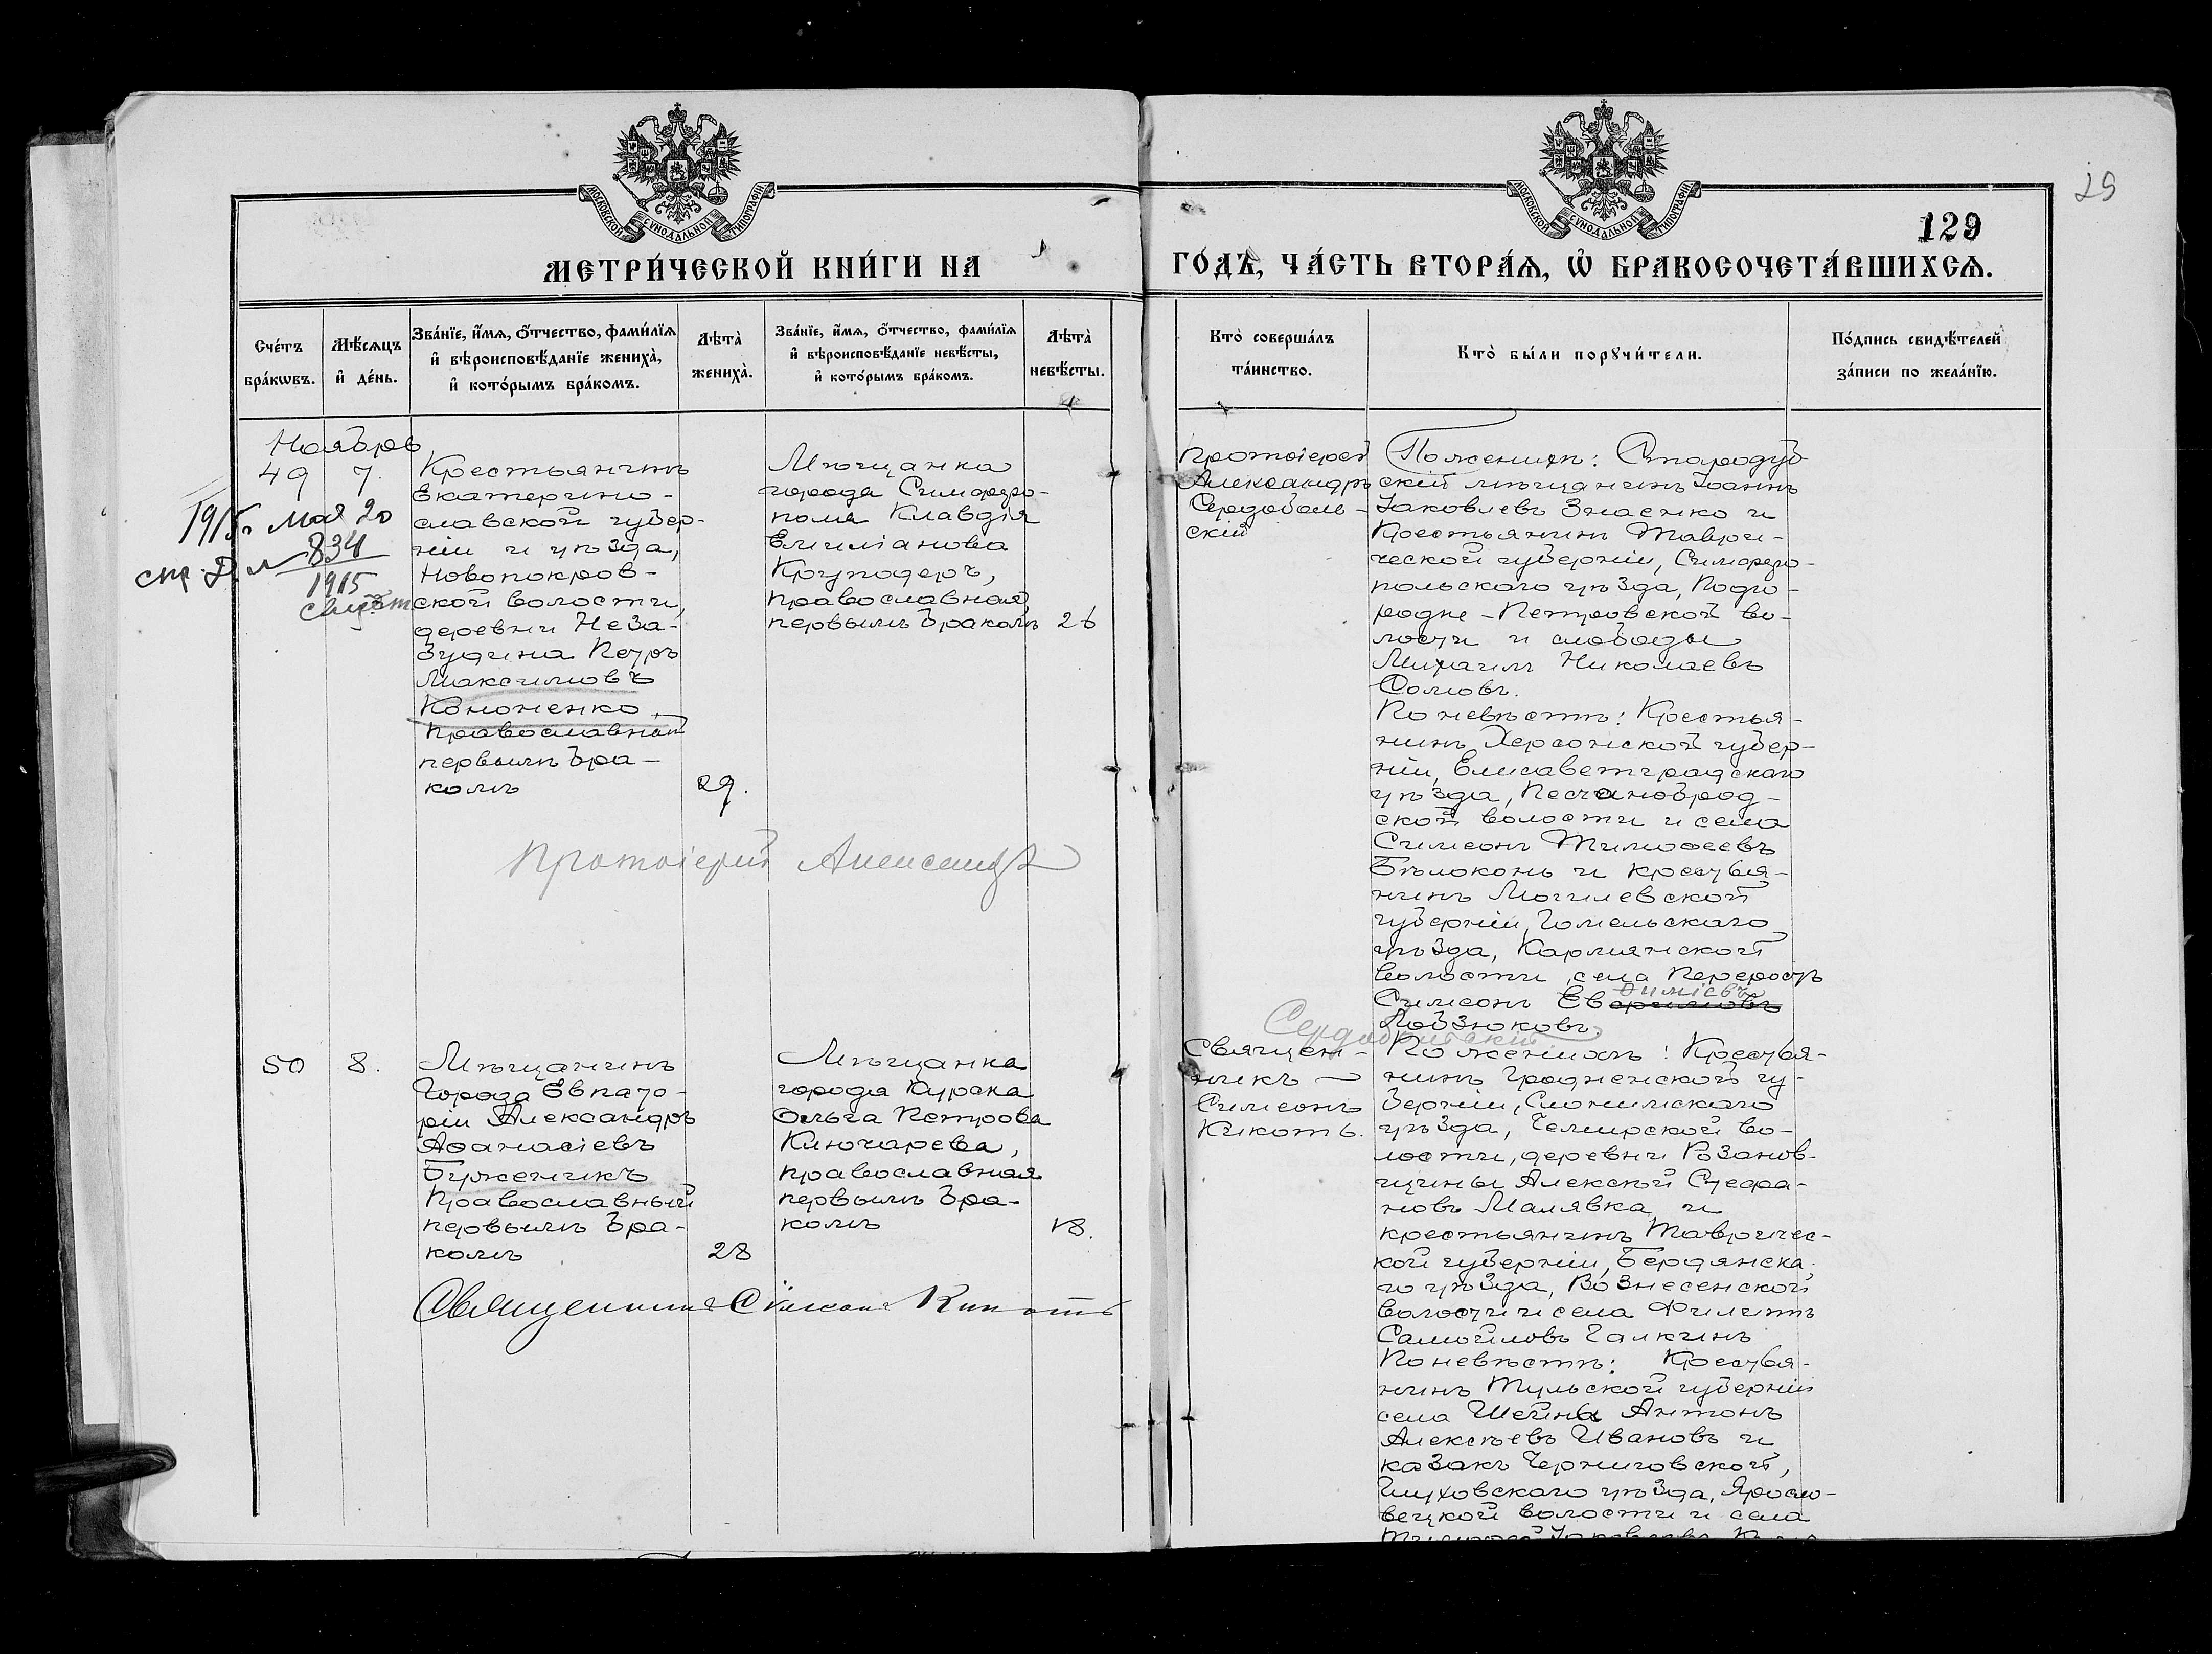 29
129
МОСКОВСКОЙ СУНОДАЛЬНОЙ ТИПОГРАФІИ
МОСКОВСКОЙ СУНОДАЛЬНОЙ ТИПОГРАФІИ
МЕТРИ́ЧЕСКОЙ КНИ́ГИ НА
ГО́ДЪ, ЧА́СТЬ ВТОРА́Ѧ, Ѽ БРАКОСОЧЕТА́ВШИХСѦ.
Сче́тъ бра́кѡвъ.
Мѣ́сѧцъ и҆ де́нь.
Зва́нїе, и҆́мѧ, ѻ҆́тчество, фами́лїѧ
и҆ вѣроисповѣ́данїе жениха̀,
и҆ кото́рымъ бра́комъ.
Лѣта̀ жениха̀.
Зва́нїе, и҆́мѧ, ѻ҆́тчество, фами́лїѧ
и҆ вѣроисповѣ́данїе невѣ́сты,
и҆ кото́рымъ бра́комъ.
Лѣта̀ невѣ́сты.
Кто̀ соверша́лъ
та́инство.
Кто̀ бы́ли порꙋчи́тели.
По́дпись свидѣ́телей
за́писи по жела́нїю.
Ноябрь
49 7.
1915г мая 20
834
1915
Крестьянинъ
Екатерино-
славской губер-
ніи и уѣзда,
Новопокров-
ской волости,
деревни Неза-
будина Петръ
Максимовъ
Кононенко,
православный
первымъ бра-
комъ
29.
Мѣщанка
города Симферо-
поля Клавдія
Емиліанова
Круподеръ,
православная
первымъ бракомъ
26
Протоіерей
Александръ
Сердоболь-
скій
По женихѣ: Стародуб
скій мѣщанинъ Іоаннъ
Іаковлевъ Знаенко и
Крестьянинъ Таври-
ческой губерніи, Симферо-
польскаго уѣзда, Подго-
родне-Петровской во-
лости и слободы
Михаилъ Николаевъ
Сомовъ.
По невѣстѣ: Крестья-
нинъ Херсонской губер-
ніи, Елисаветградскаго
уѣзда, Песчаноброд-
ской волости и села
Симеонъ Тимоѳеевъ
Бѣлоконь и крестья-
нинъ Могилевской
губерніи, Гомельскаго
уѣзда, Кармянской
волости, села Перерость
Симеонъ Евѳиміевъ
Лобзюковъ.
Протоіерей Александръ
Сердобольскій
50 8.
Мѣщанинъ
Города Евпато-
ріи Александръ
Аѳанасіевъ
Бужениикъ
Православный
первымъ бра-
комъ
28
Мѣщанка
города Курска
Ольга Петрова
Ключарева,
православная
первымъ бра-
комъ
18.
Священ-
никъ
Симеонъ
Кикоть.
По женихѣ: Крестья-
нинъ Гродненской гу-
берніи, Слонимскаго
уѣзда, Чемирской во-
лости, деревни Розанов-
щины Алексѣй Стефа-
новъ Малявка и
крестьянинъ Тавричес-
кой губерніи, Бердянска-
го уѣзда, Вознесенской
волости и села Филиппъ
Самойловъ Галкинъ
По невѣстѣ: Крестья-
нинъ Тульской губерніи
села Шеина Антонъ
Алексѣевъ Ивановъ и
казакъ Черниговской,
Глуховскаго уѣзда, Яросло-
вецкой волости и села
Священникъ Симеонъ Кикоть